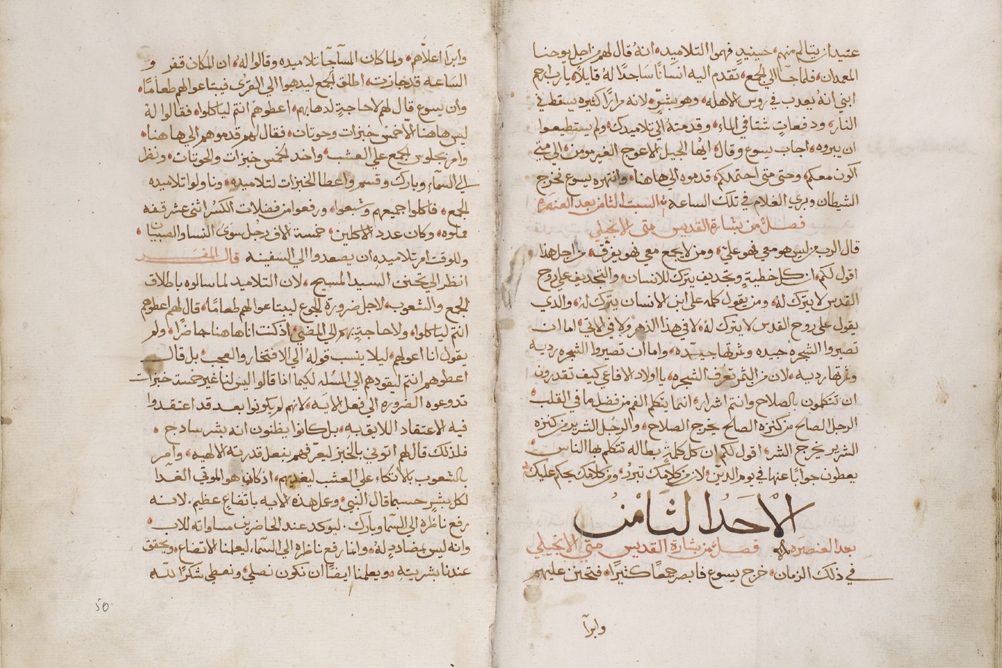 عتيدان يتالم منهم حينيذٍ فهموا التلاميذ انهُ قال لهم من اجل يوحنا
المعمدان فلما جا الي الجمع تقدم اليه انسانًا ساجدًا لهُ قايلاً يارب ارحم
ابني انهُ يعدب في رووس الاهله وهو بشرٍ لانه مرارًا كثيره يسقط في
النار ودفعاتٍ شتا في الماء وقدمتهُ الي تلاميدك ولم يستطيعوا
ان يبروه اجاب يسوع وقال ايها الجيل الاعوج الغير مومن الي متي
اكون معكم وحتي متي احتملكم قدموه الي هاهنا وانتهره يسوع فخرج
الشيطان وبري الغلام في تلك الساعه السبت الثامن بعد العنصره
فصل من بشارة القديس متي الانجيلي
قال الرب من ليس هو معي فهو عليّ ومن لا يجمع معي فهو يفرق من اجل هذا
اقول لكم ان كل خطيةٍ وتجديف يترك للانسان والتجديف علي روح
القدس لا يترك لهُ ومن يقول كلمه علي ابن الانسان يترك لهُ والدي
يقول علي روح القدس لا يترك لهُ لا في هذا الدهر ولا في الاتي اما ان
تصيروا الشجره جيده وثمرتها جيده واما ان تصيروا الشجره رديه
وثمرتها رديه لان من الثمر تعرف الشجره يا اولاد الافاعي كيف تقدرون
ان تتكلمون بالصلاح وانتم اشرار انما يتكلم الفم من فضل ما في القلب
الرجل الصالح من كنزه الصالح يخرج الصلاح والرجل الشرير من كنزه
الشرير يخرج الشر اقول لكم ان كل كلمةٍ بطاله تتكلمها الناس
يعطون جوابًا عنها في يوم الدين لان من كلامك تبرر ومن كلامك يحكم عليك
الاحد الثامن
بعد العنصره فصل من بشارة القديس متي الانجيلي
في ذلك الزمان خرج يسوع فابصر جمعًا كثيرًا فتحنن عليهم
وابرا
وابرا اعلاهم ولما كان المسا جا تلاميده وقالوا لهُ ان المكان قفر و
الساعه قد جازت اطلق الجمع ليدهبوا الي القري فيبتاعوا لهم طعامًا
وان يسوع قال لهم لا حاجةٍ لدهابهم اعطوهم انتم لياكلوا فقالوا لهُ
ليس هاهنا الا خمس خبزات وحوتان فقال لهم قدموهم الي هاهنا
وامر بجلوس الجمع علي العشب واخد الخمس خبزات والحوتان ونظر
الي السماء وبارك وقسم واعطا الخبزات لتلاميده وناولوا تلاميده
الجمع فاكلوا جميعهم وشبعوا ورفعوا من فضلات الكسر اثني عشر قفه
مملوه وكان عدد الاكلين خمسة الاف رجل سوي النسا والصبيان
وللوقت امر تلاميده ان يصعدوا الي السفينه قال المفسر
انظر الي تحنن السيد المسيح لان التلاميد لما سالوه باطلاق
الجمع والشعوب لاجل ضرورة الجوع ليبتاعوا لهم طعامًا قال لهم اعطوهم
انتم لياكلوا ولا حاجةٍ بهم الي المضي ادكنت انا هاهنا حاضرًا ولم
يقول انا اعولهم ليلا ينسب قولهُ الي الافتخار والعجب بل قال
اعطوهم انتم ليقودهم الي المسله لكيما ادا قالوا اليس لنا غير خمسة خبزات
تدعوه الضروره الي فعل الايه لانهم لم يكونوا بعد قد اعتقدوا
فيه الاعتقاد اللايق به بل كانوا يظنون انه بشر سادج
فلدلك قال لهم اتوني بالخبز ليعرفهم بفعل قدرته الالهيه وامر
الشعوب بالاتكاء علي العشب ليغديهم ادكان هو الموتي الغدا
لكل بشرٍ حسبما قال النبي وعمل هذه الايه باتضاعٍ عظيم لانه
رفع ناظره الي السما وبارك ليوكد عند الحاضرين مساواته للاب
وانه ليس بضاددٍ لهُ وانما رفع ناظره الي السما ليعلمنا الاتضاع ويحقق
عندنا بشريته ويعلمنا ايضًا ان نكون نصلي ونعطي شكرًا لله
50